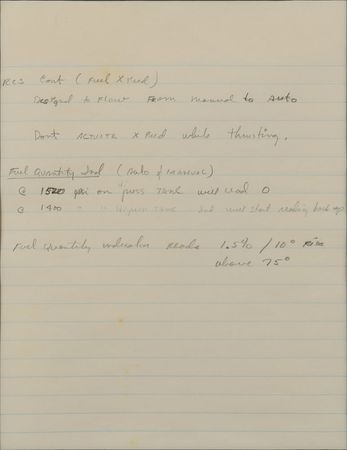 RCS Cont (Fuel X Feed)
Designed to Flow From manual to Auto
Dont Activate X Feed while thrusting.
Fuel Quantity Ind (Auto & Manual)
@ 1500 psi on press tank will read 0
@ 1400 " " tank and will start reading back up
Fuel Quantity indicator Reads 1.5% / 10° Rise
above 75°